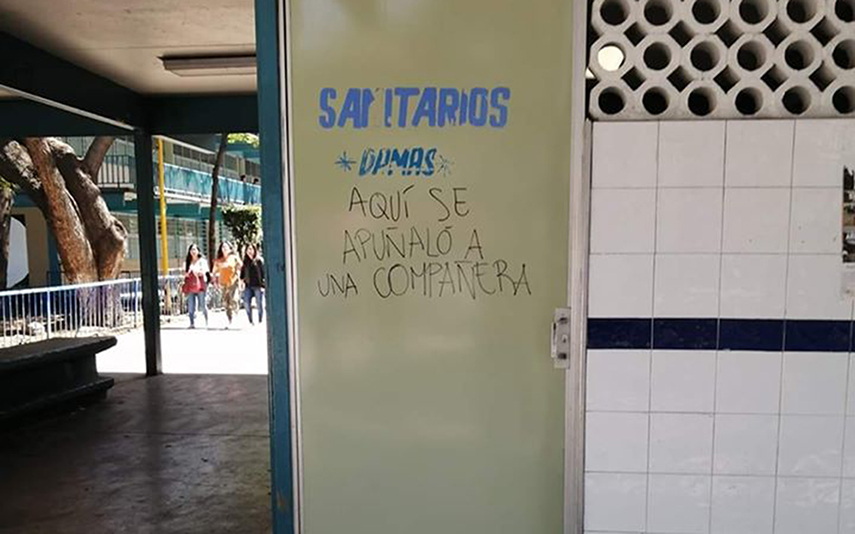 SANITARIOS
*DAMAS*
AQUÍ SE
APUÑALÓ A
UNA COMPAÑERA